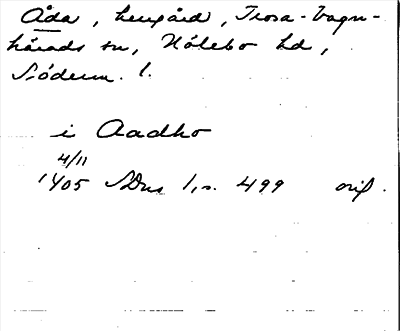 Åda, herrgård, Trosa-Vagn-
härads sn, Hölebo hd,
Söderm. l.
i Aadho
4/11
1405 SDns 1, s. 499 orig.